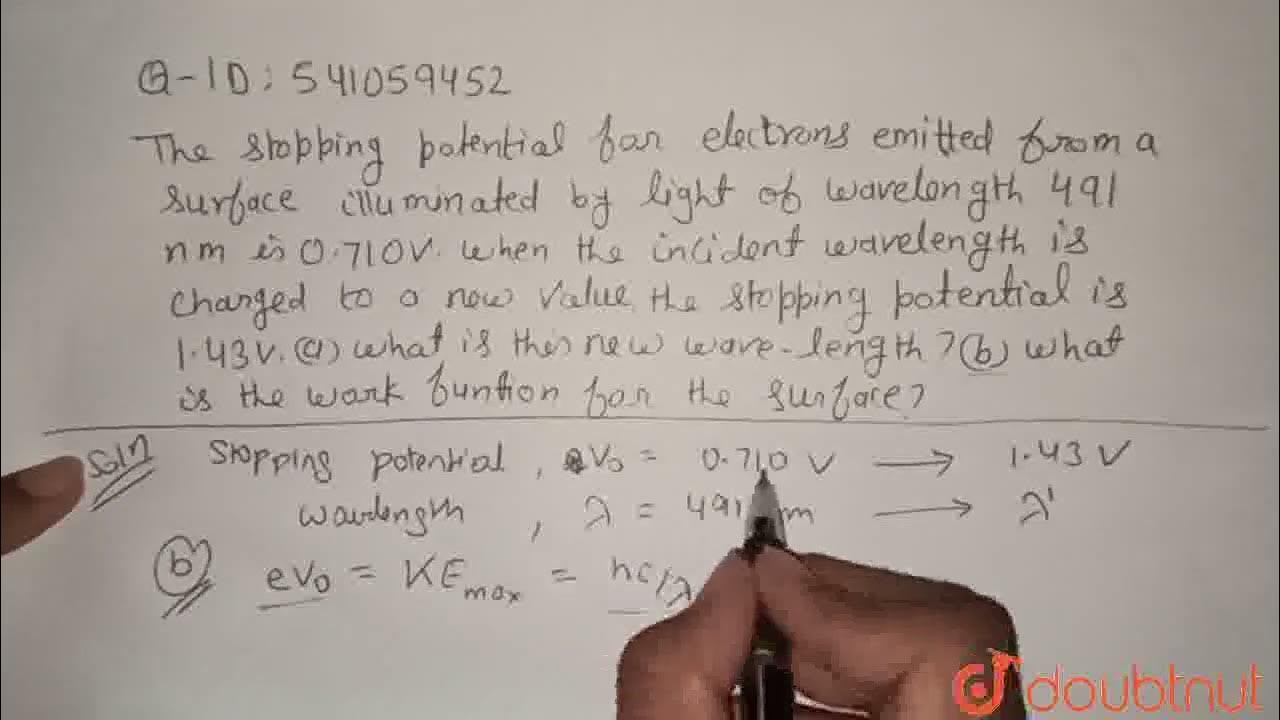 Q-ID: 541059452
The stopping potential for electrons emitted from a
surface illuminated by light of wavelength 491
nm is 0.710V. when the incident wavelength is
charged to a new value, the stopping potential is
1.43V. (a) what is this new wave-length? (b) what
is the work funtion for the surface?
Soln Stopping potential, eV₀ = 0.710 V → 1.43 V
wavlength, λ = 491 m → λ'
(b) eV₀ = KEmax = hc/λ
doubtnut